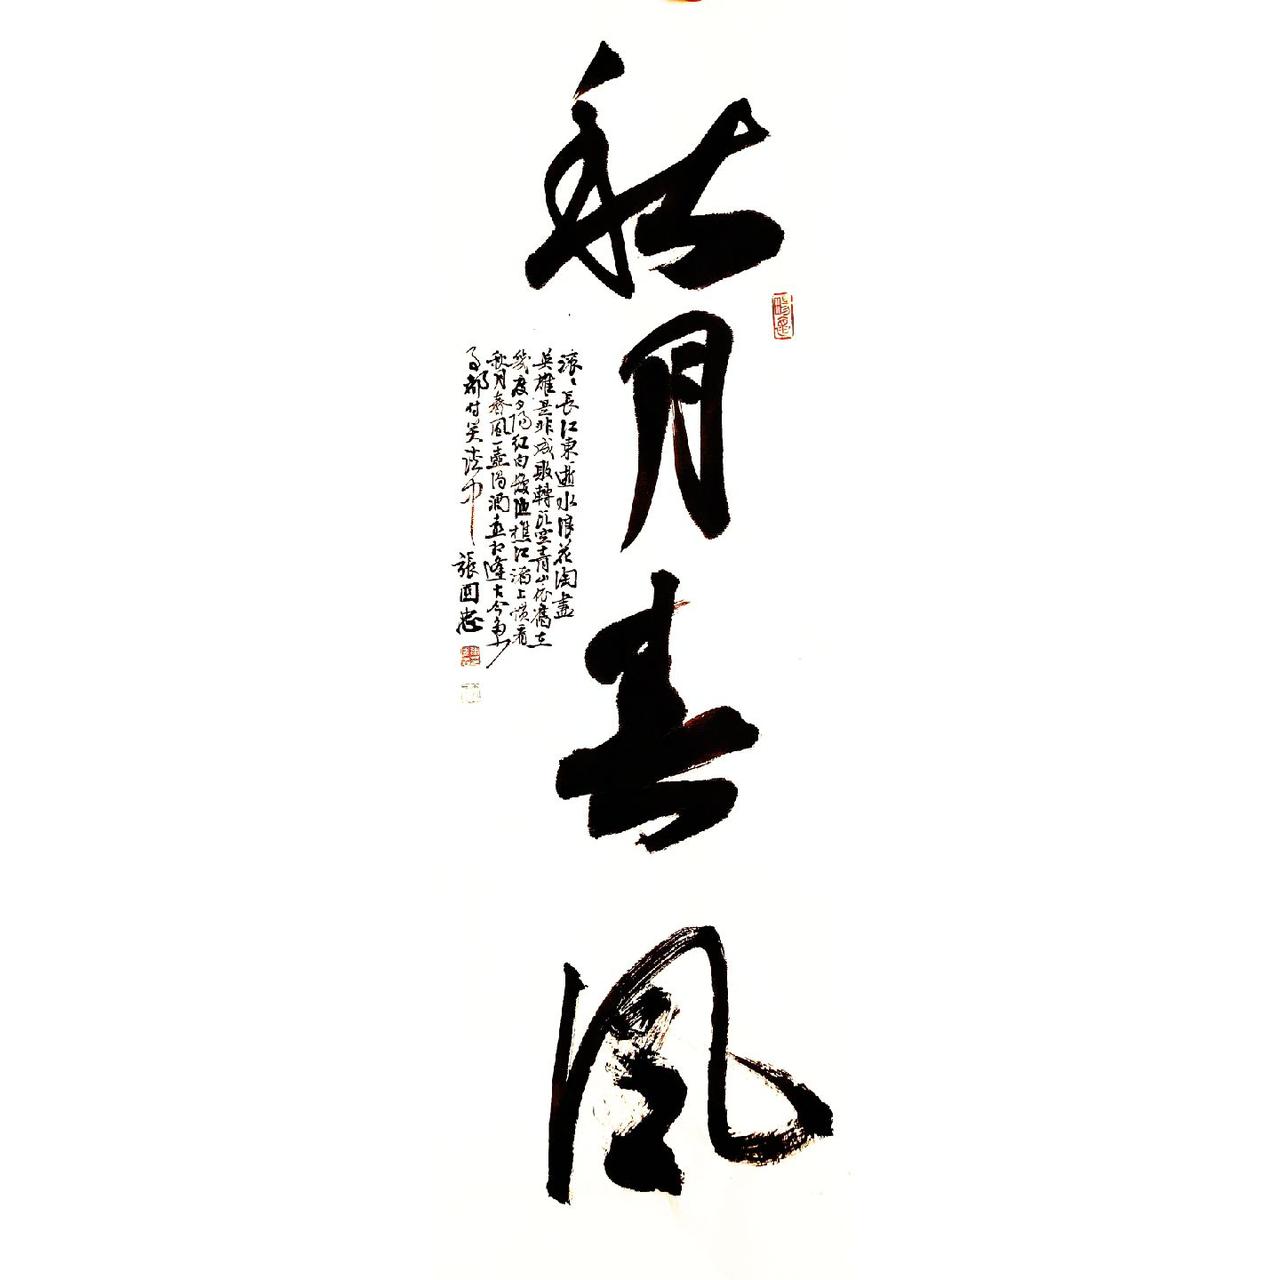 秋月春風
滾滾長江東逝水浪花淘盡
英雄是非成敗轉頭空青山依舊在
幾度夕陽紅白發漁樵江渚上慣看
秋月春風一壺濁酒喜相逢古今多少
事都付笑談中
張國忠